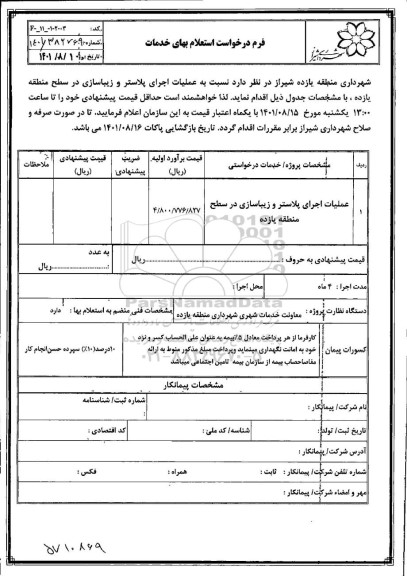 فرم درخواست استعلام بهای خدمات
کد: ۶۰_۱۱_۰۱۰۲۰۰۳
شماره: ۱۴۰/۳۸۲۷۶۹
تاریخ: ۱۴۰۱/۸/۱۰
شهرداری منطقه یازده شیراز در نظر دارد نسبت به عملیات اجرای پلاستر و زیباسازی در سطح منطقه
یازده ، با مشخصات جدول ذیل اقدام نماید. لذا خواهشمند است حداقل قیمت پیشنهادی خود را تا ساعت
۱۳:۰۰ یکشنبه مورخ ۱۴۰۱/۰۸/۱۵ با یکماه اعتبار قیمت به این سازمان اعلام فرمایید، تا در صورت صرفه و
صلاح شهرداری شیراز برابر مقررات اقدام گردد. تاریخ بازگشایی پاکات ۱۴۰۱/۰۸/۱۶ می باشد.
ردیف مشخصات پروژه/ خدمات درخواستی قیمت برآورد اولیه (ریال) ضریب پیشنهادی قیمت پیشنهادی (ریال) ملاحظات
۱ عملیات اجرای پلاستر و زیباسازی در سطح منطقه یازده ۴/۸۰۰/۷۷۶/۸۳۷
قیمت پیشنهادی به حروف : ریال به عدد : ریال
مدت اجرا : ۴ ماه محل اجرا :
دستگاه نظارت پروژه : معاونت خدمات شهری شهرداری منطقه یازده مشخصات فنی منضم به استعلام بها : دارد
کسورات پیمان کارفرما از هر پرداخت معادل ۵٪ بیمه به عنوان علی الحساب کسر و نزد
خود به امانت نگهداری مینماید وپرداخت مبلغ مذکور منوط به ارائه
مفاصاحساب بیمه از سازمان بیمه تامین اجتماعی میباشد
۱۰درصد(۱۰٪) سپرده حسن‌انجام کار
مشخصات پیمانکار
نام شرکت/ پیمانکار : شماره ثبت/ شناسنامه :
تاریخ ثبت/ تولد : شناسه/ کد ملی : کد اقتصادی :
آدرس شرکت/ پیمانکار :
شماره تلفن شرکت/ پیمانکار : ثابت : همراه : فکس :
مهر و امضاء شرکت/ پیمانکار :
ParsNamadData
۵۷۱۰۸۶۹